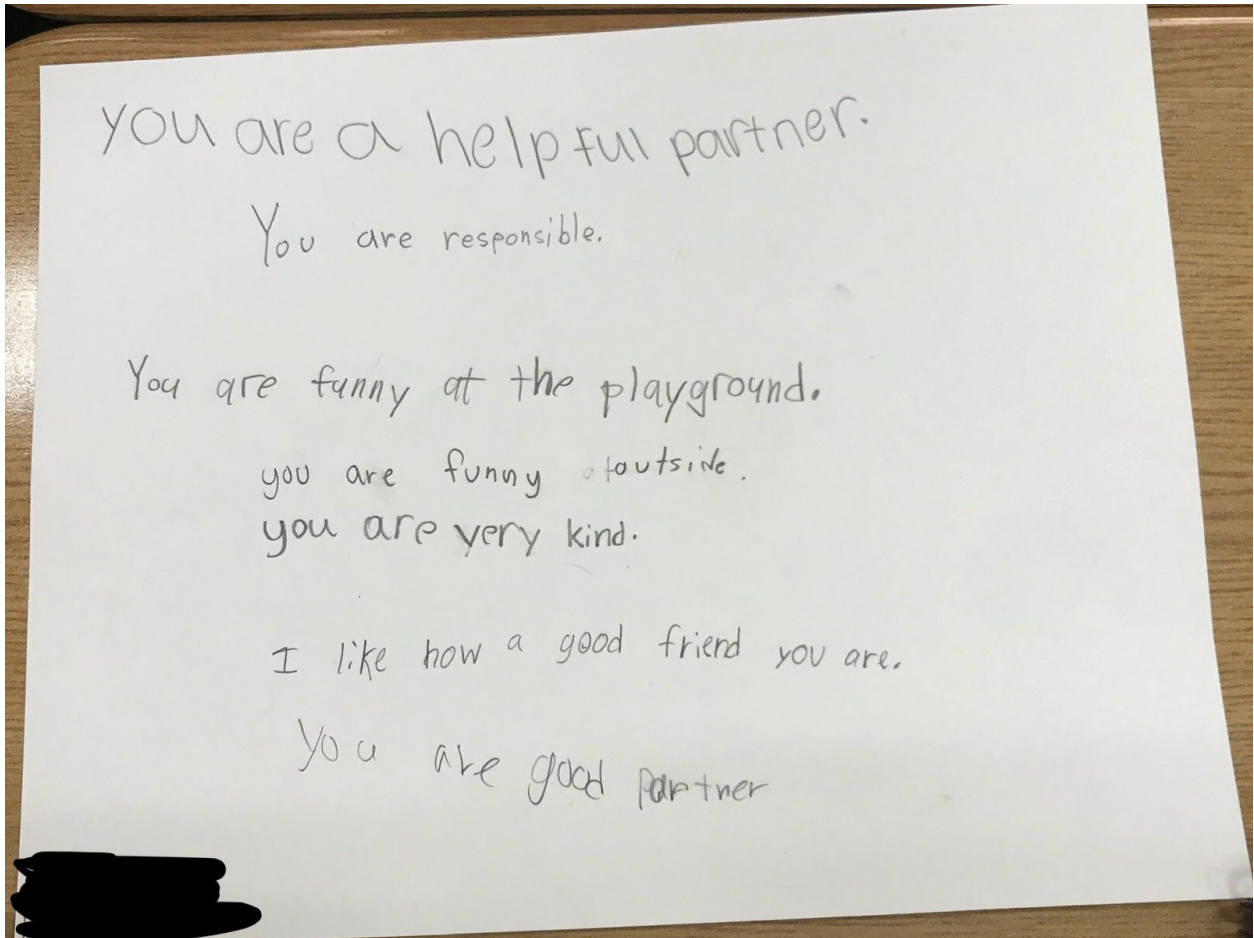 you are a helpful partner.
You are responsible.
You are funny at the playground.
you are funny outside.
you are very kind.
I like how a good friend you are.
You are good partner